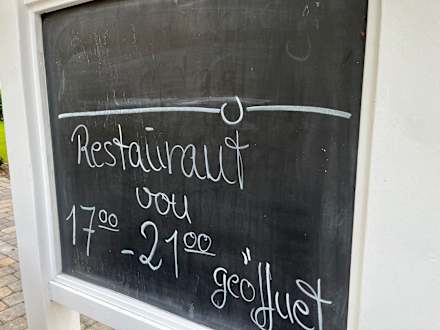 Restaurant
von
17⁰⁰ - 21⁰⁰
geöffnet